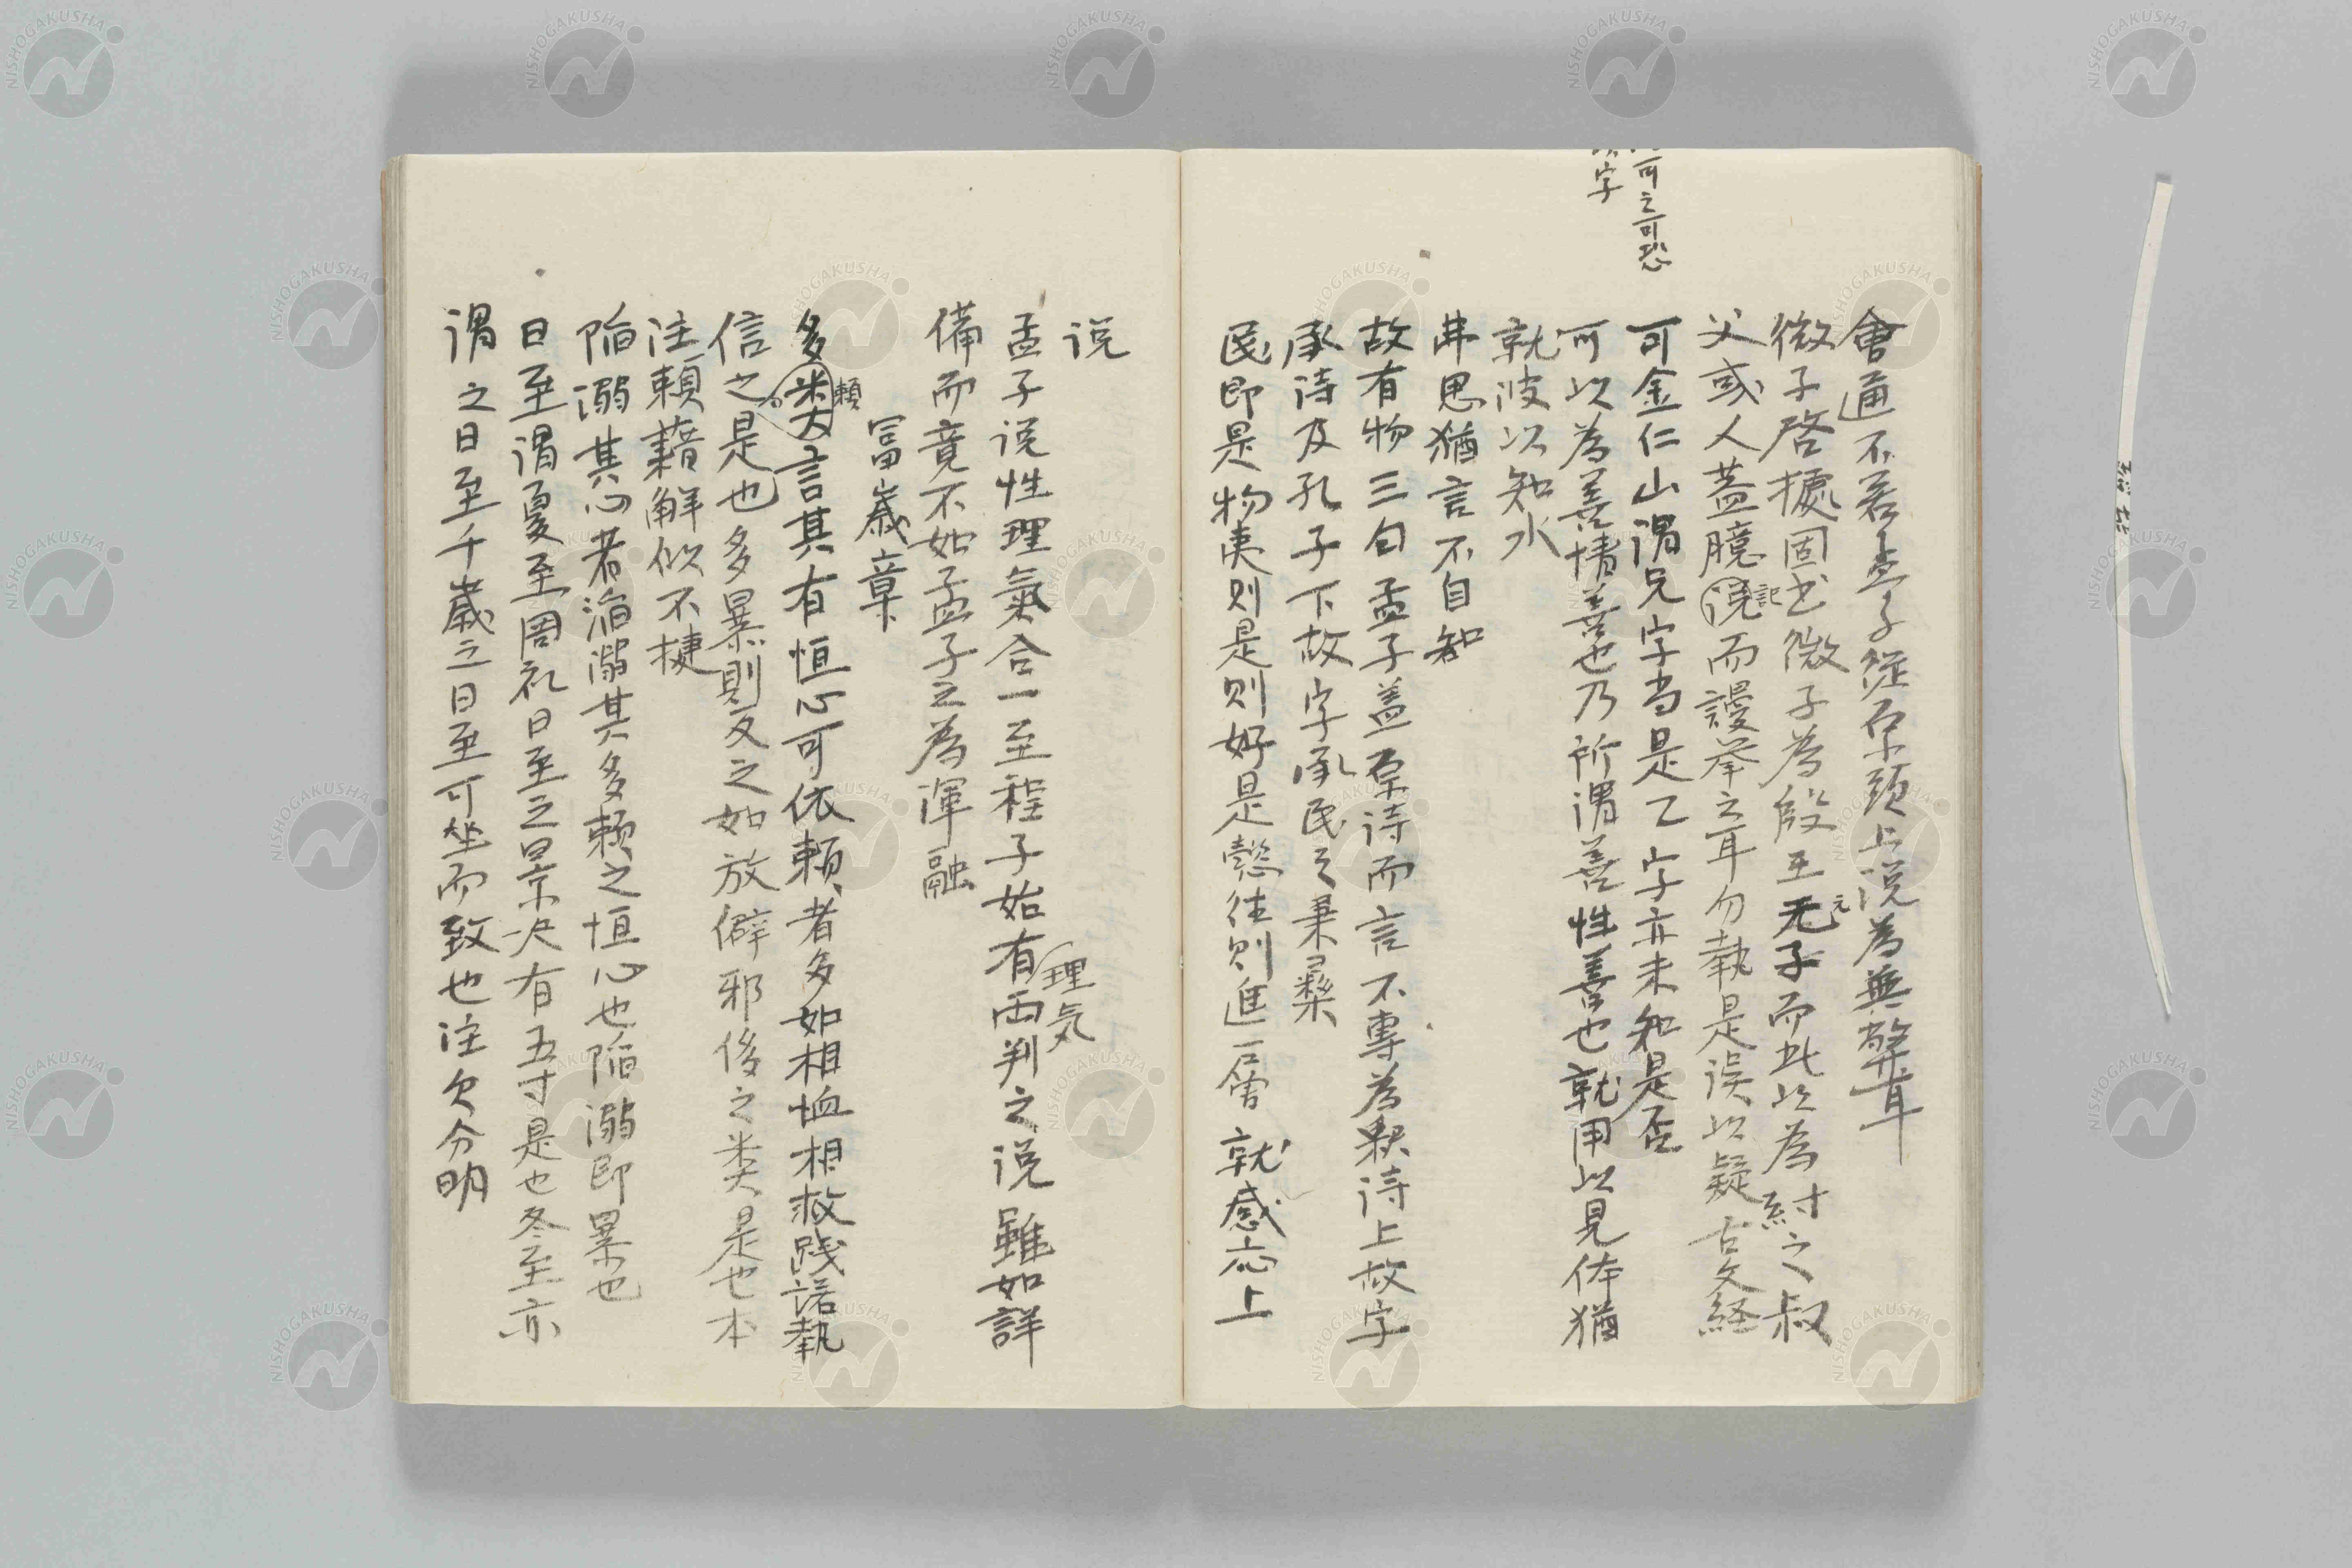 會通不若孟子從原頭上説為無弊耳
微子啓據固出微子為殷王元子而此以為紂之叔
父或人蓋臆記而謾挙之耳勿執是誤以疑古文経
可金仁山謂兄字当是乙字亦未知是否
可之可恐
字
可以為善情善也乃所謂善性善也就用以見体猶
就波以知水
弗思猶言不自知
故有物三句孟子蓋原詩而言不専為釈詩上故字
承詩及孔子下故字承民之秉彝
民即是物夷則是則好是懿徃則進一層就感応上
说
孟子说性理氣合一至程子始有理気両判之说雖如詳
備而竟不如孟子之為渾融
冨歳章
多頼言其有恒心可依頼者多如相恤相救践諾執
信之是也多暴則反之如放僻邪侈之类是也本
注頼藉解似不捷
陥溺其心者陥溺其多頼之恒心也陥溺即暴也
日至谓夏至周礼日至之景尺有五寸是也冬至亦
谓之日至千歳之日至可坐而致也注欠分明
NISHOGAKUSHA